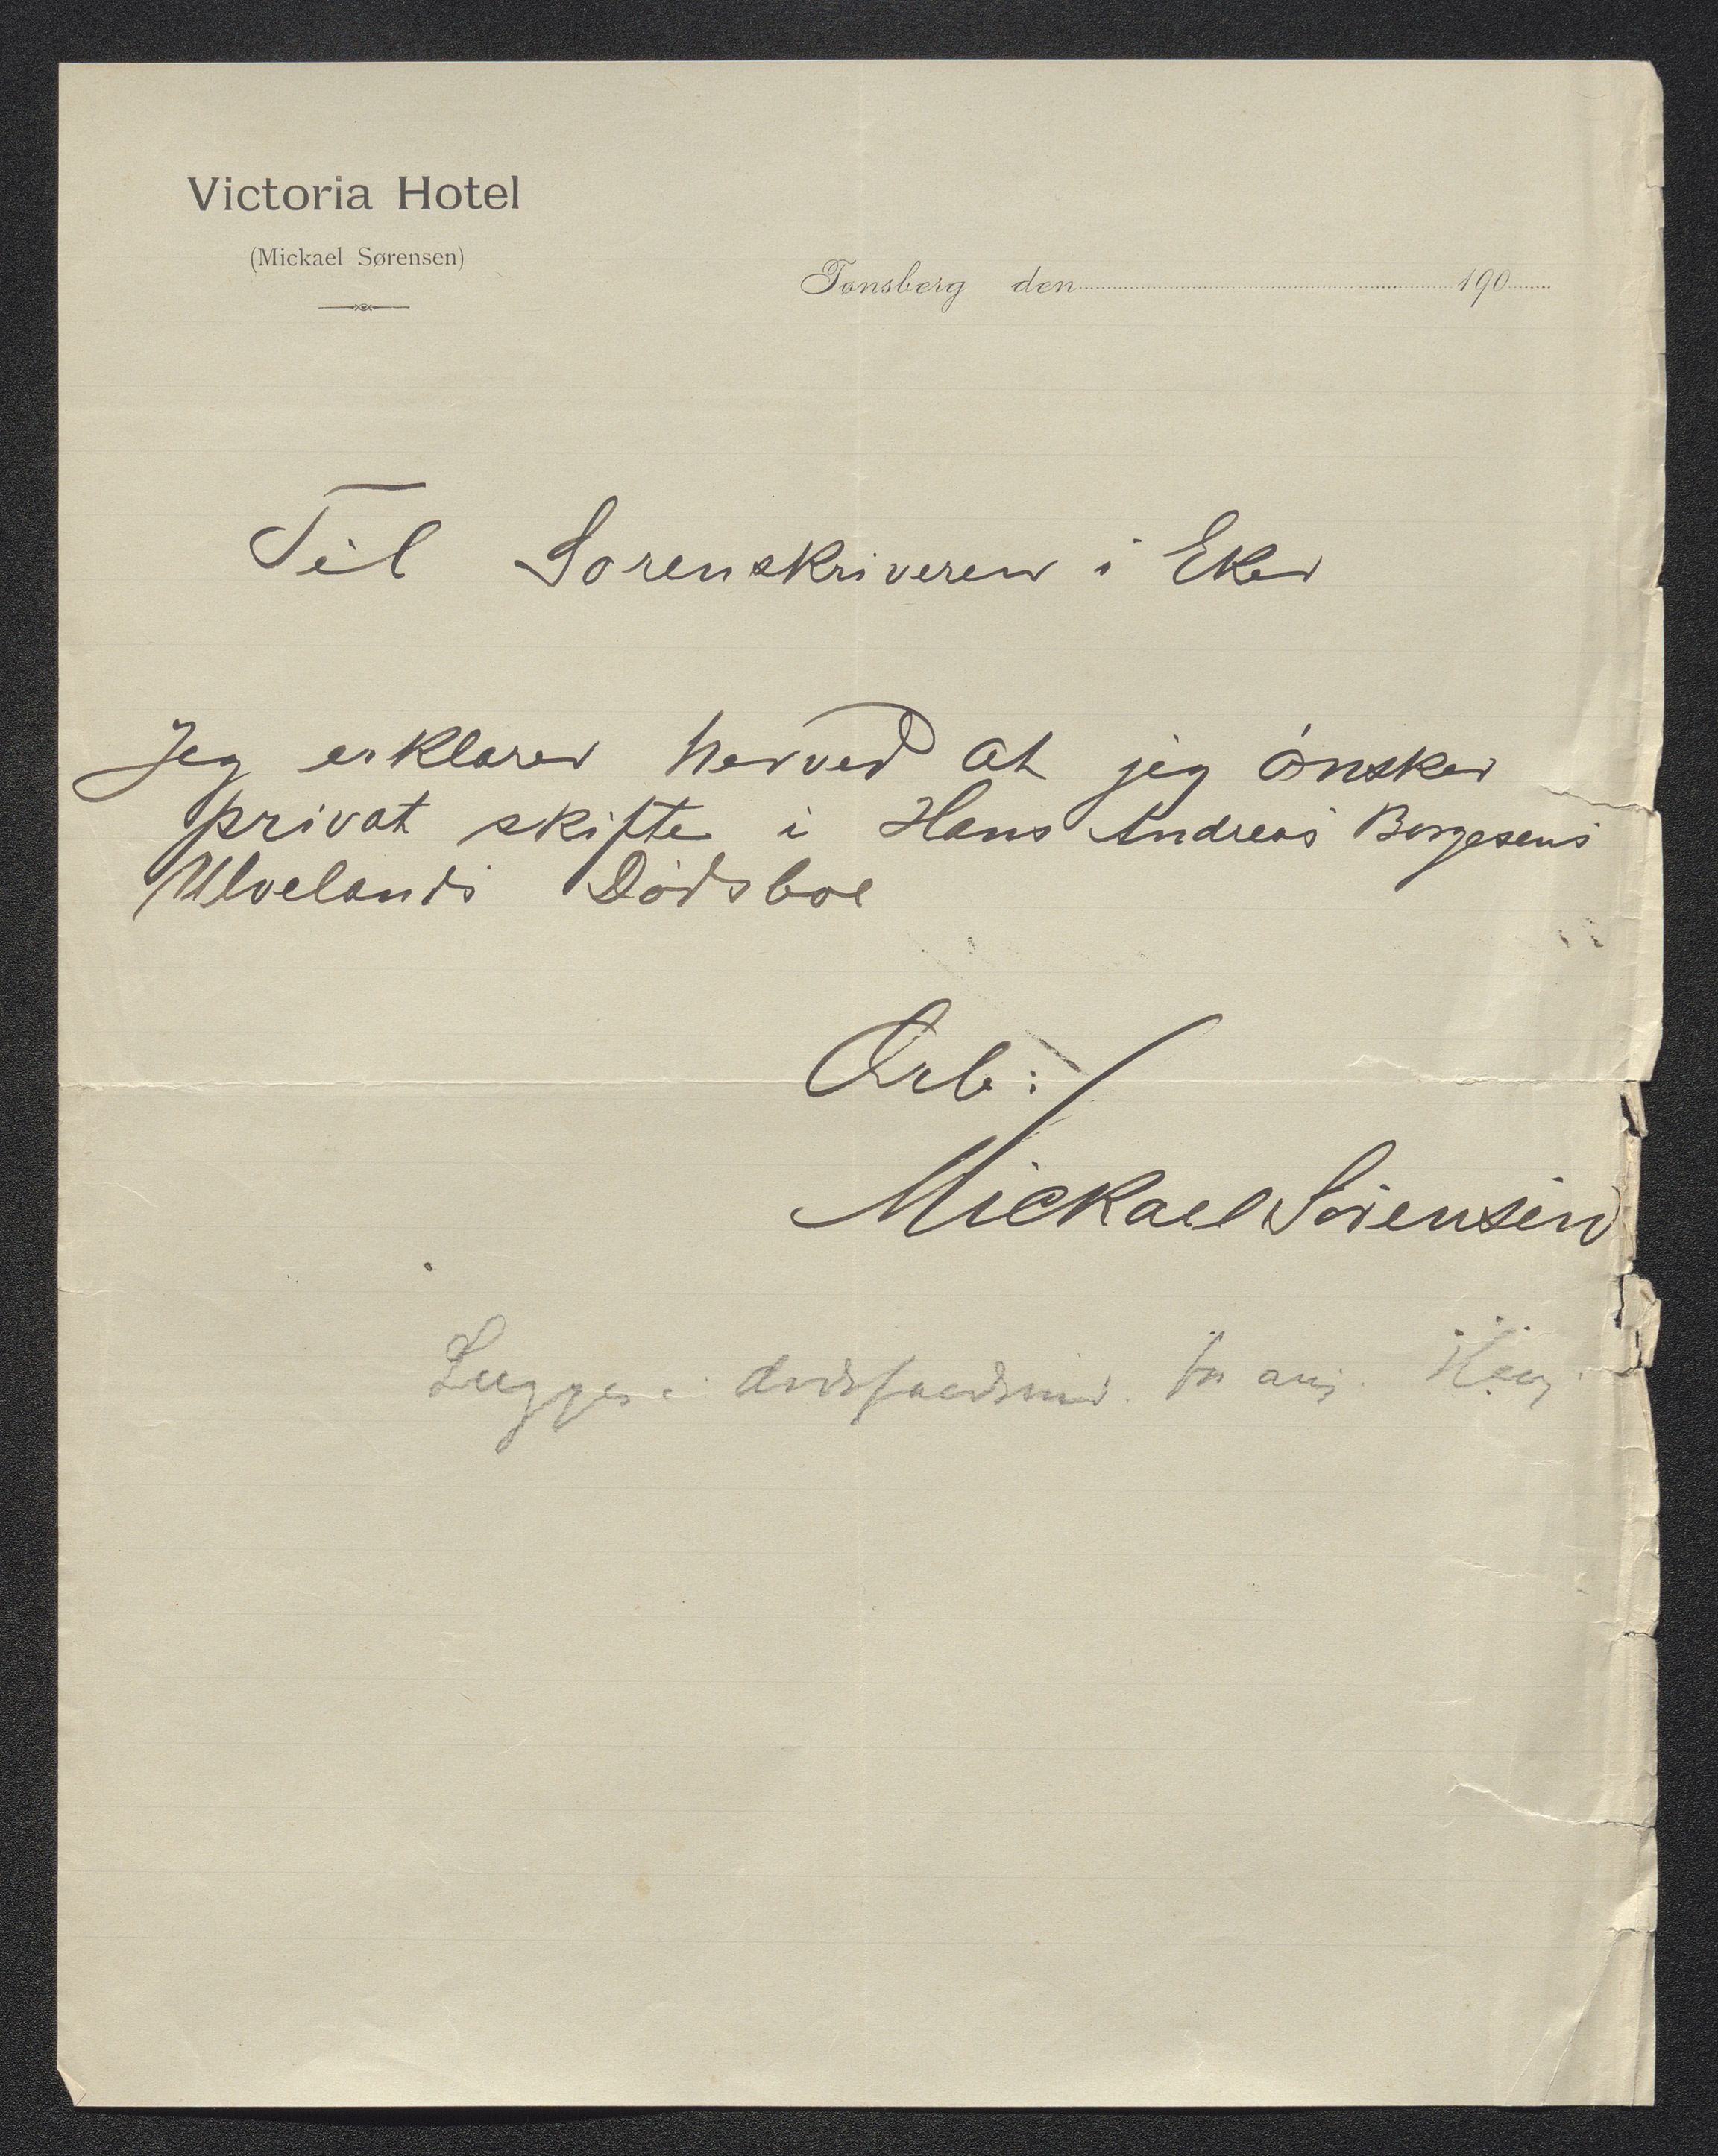 Victoria Hotel
(Mickael Sørensen)
Tønsberg den 190
Til Sorenskriveren i Eker
Jeg erklarer herved at jeg ønsker
privat skifte i Hans Andreas Borgesens
Ulvelands Dødsboe
Ærb:
Mickael Sørensen
Lægges i dødsfaldsm.